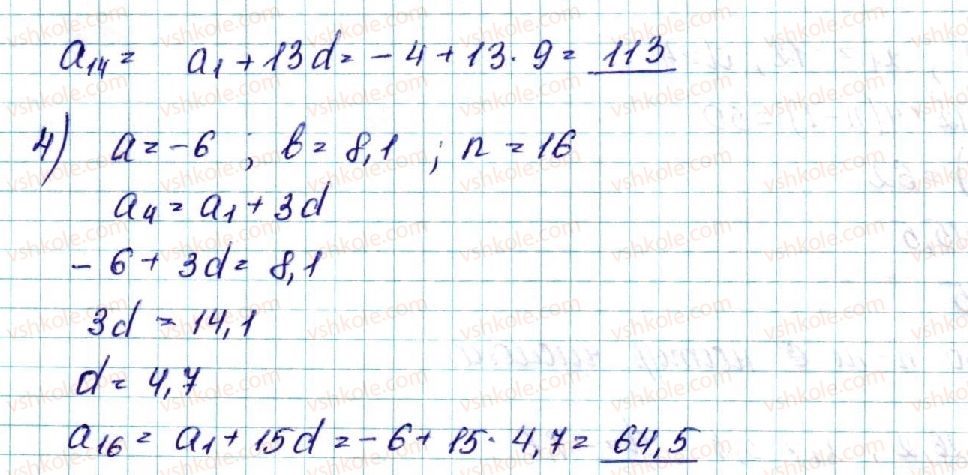 a₁₄ = a₁ + 13d = - 4 + 13 · 9 = 113
4) a = -6 ; b = 8,1 ; n = 16
a₄ = a₁ + 3d
- 6 + 3d = 8,1
3d = 14,1
d = 4,7
a₁₆ = a₁ + 15d = - 6 + 15 · 4,7 = 64,5